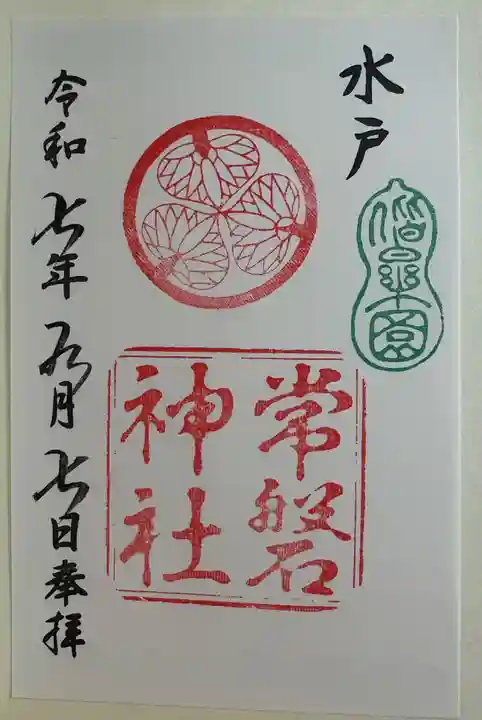 水戸
偕樂園
常磐
神社
令和七年五月七日奉拝